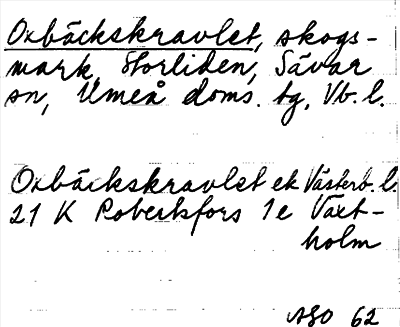 Oxbäckskravlet, skogs-
mark, Storliden, Sävar
sn, Umeå doms. tg, Vb. l.
Oxbäckskravlet ek Västerb. l.
21 K Robertsfors 1e Växt-
holm
ASO 62